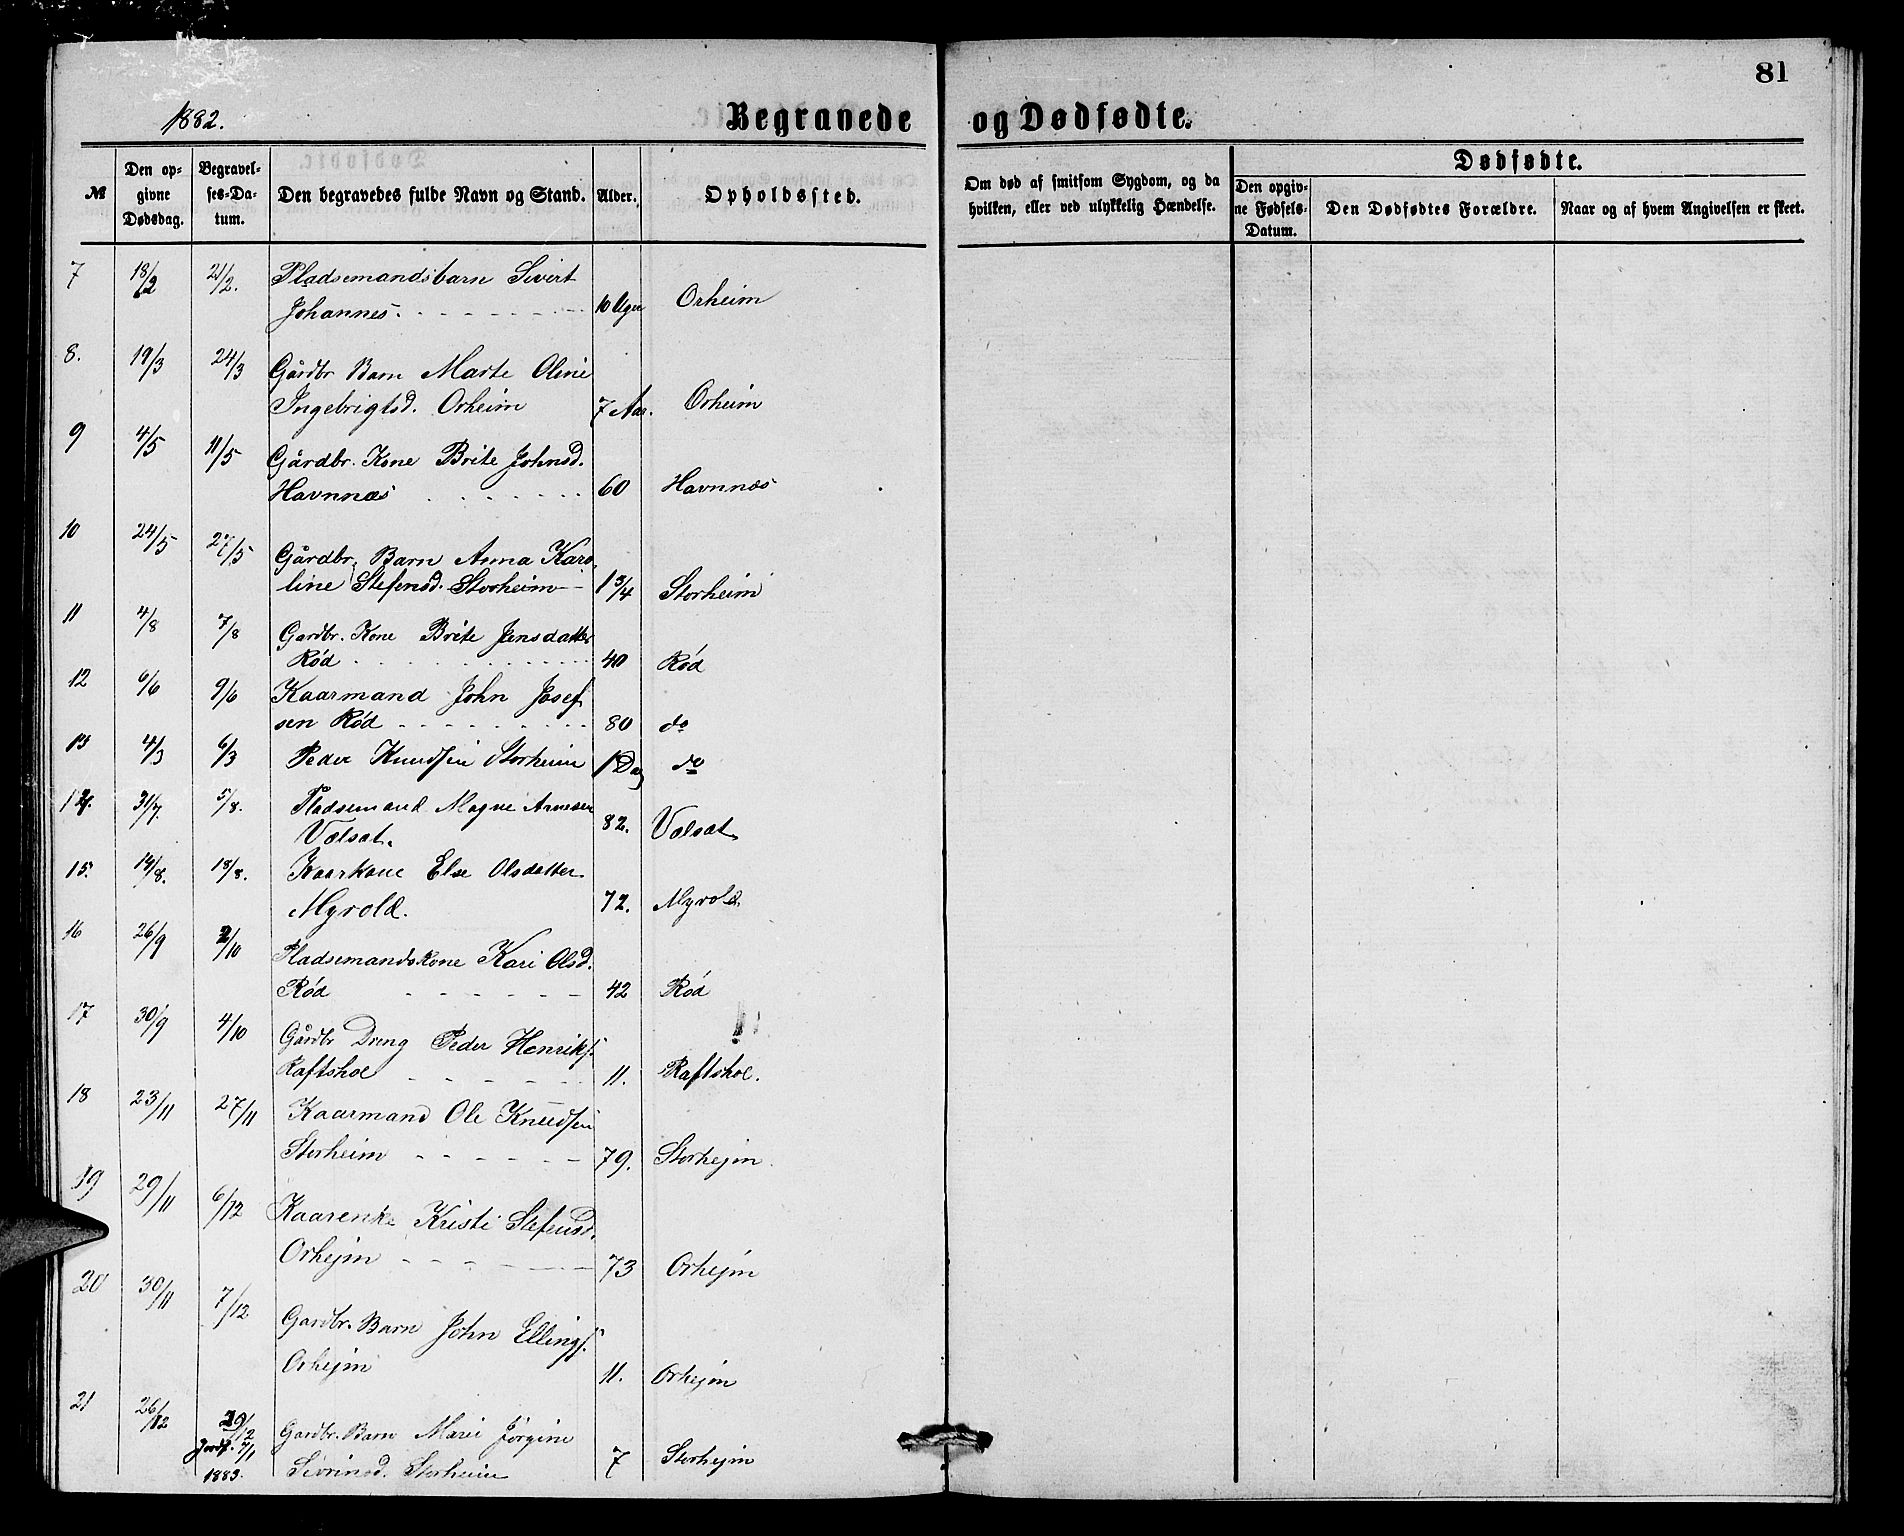 81
1882.
Begravede og Dødfødte.
№
Den opgivne Dødsdag.
Begravelses-Datum.
Den begravedes fulde Navn og Stand.
Alder.
Opholdssted.
Om død af smitsom Sygdom, og da hvilken, eller ved ulykkelig Hændelse.
Dødfødte.
Den opgivne Fødsels-Datum.
Den Dødfødtes Forældre.
Naar og af hvem Angivelsen er skeet.
7 18/2 21/2. Pladsemandsbarn Sivert
Johannes. 10 Uger Orheim
8. 19/3 24/3 Gårdbr Barn Marte Oline
Ingebrigtsd. Orheim 7 Aar. Orheim
9 4/5 11/5 Gårdbr. Kone Brite Johnsd.
Havnnæs 60 Havnnæs
10 24/5 27/5 Gårdbr. Barn Anna Karo
line Stefensd. Storheim 1 3/4 Storheim
11 4/8 7/8 Gardbr. Kone Brite Jensdatter
Rød 40 Rød
12 6/6 9/6 Kaarmand John Josef
sen Rød 80 do
13 4/3 6/3 Peder Knudsen Storheim 1 Dag do
14. 31/7. 5/8. Pladsemand Magne Arnesen
Vælsæt. 82. Vælsæt
15. 14/8. 18/8. Kaarkone Else Olsdatter
Myrold. 72. Myrold.
16 26/9 2/10 Pladsemandskone Kari Olsd.
Rød 42 Rød
17 30/9 4/10 Gårdbr Dreng Peder Henriks.
Raftshol 11. Raftshol.
18 23/11 27/11 Kaarmand Ole Knudsen
Storheim 79. Storhejm.
19 29/11 6/12 Kaarenke Kristi Stefensd.
Orhejm 73 Orhejm
20 30/11 7/12 Gardbr. Barn John Ellings.
Orhejm 11. Orhejm
21 26/12 29/12 Gardbr. Barn Marie Jørgine
Jordf. 7/1
1883. Sivrinsd. Storheim 7 Storhejm